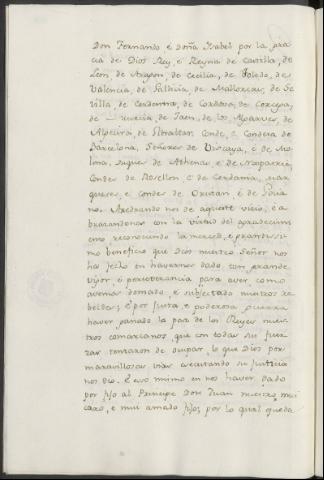 Don Fernando é Doña Isabel por la gra
cia de Dios Rey, é Reyna de Castilla, de
Leon, de Aragon, de Cecilia, de Toledo, de
Valencia, de Galicia, de Mallorcas, de Se
villa, de Cerdenna, de Cordova, de Corcega,
de Murcia, de Jaen, de los Algarves, de
Algecira, de Gibraltar, Conde, é Condesa de
Barcelona, Señores de Vizcaya, é de Mo
lina, Duques de Athenas, é de Neopatria,
Condes de Rosellon, é de Cerdania, Mar
queses, é Condes de Oristan, é de Gocia
nos Arredrando nos de aqueste vicio, é a
brazandonos con la virtud del agradecimi
ento reconociendo la merced, é grandissi
mo beneficio que Dios nuestro Señor nos
ha fecho en havernos dado tan grande
vigor, é perseverancia para aver como
avemos domado, é subjectado nuestros re
beldes; é por justa, é poderosa guerra
haver ganado la paz de los Reyes nues
tros comarcanos, que con todas sus fuer
zas tentaron de ocupar, lo que Dios por
maravillosas vias executando su justicia
nos dio. É eso mismo en nos haver dado
por fijo al Principe Don Juan nuestro mui
caro, é mui amado fijo, por lo qual queda